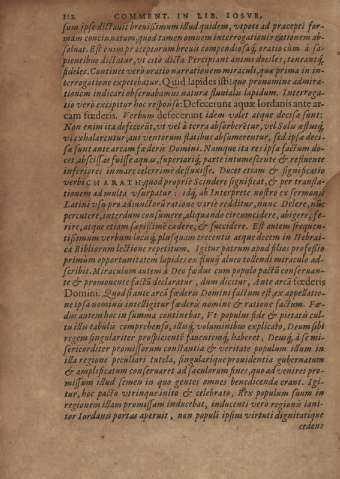 112. COMMENT. IN LIB. IOSVE,
sum ipse dictauit breuissimum illud quidem, vtpote ad praecepti for-
mam concinnatum, quod tamen omnem interrogationis rationem ab-
soluat. Est enim praeceptorum breuis compendiosaq́; oratio cùm à sa-
pientibus dictatur, vt citò dicta Percipiant animi dociles, teneantq́;
fideles. Continet verò oratio narrationem miraculi, quo prima in in-
terrogatione expetebatur. Quid lapides istiq; pronomine admira-
tionem indicari obseruabamus natura fluuialis lapidum. Interroga-
tio verò excipitur hoc responso: Defecerunt aquae Iordanis ante ar-
cam foederis. Verbum defecerunt idem valet atque decisa sunt:
Non enim ita defecerūt, vt vel à terra absorberētur, vel Solis aestu
exhalarentur, aut ventorum flatibus absumerentur, sed ipsae deci-
sae sunt ante arcam foederis Domini. Nunquā ita res ipsa factum do-
cet, abscissas fuisse aquas, superiariq́; parte intumescente & restinente
inferiori in mare celerrimè defluxisse. Docet etiam & significatio
verbi CHARATH quod propriè Scindere significat, & per transla-
tionem ad multa vsurpatur: idq́; ab Interprete nostro ex sermonis
Latini vsu pro adiunctorū ratione variè redditur, nunc Delere, nūc
percutere, interdum consumere, aliquando circumcidere, abigere, fe-
rire, atque etiam saepissimè caedere, & succidere. Est autem frequen-
tissimum verbum locisq́; plusquam trecentis atque decem in Hebrai-
ca Bibliorum lectione repetitum. Igitur patrum apud filios professio
primùm opportunitatem lapides ex fluuij alueo tollendi miraculo ad-
scribit. Miraculum autem à Deo foedus cum populo pactū conseruan-
te & promouente factū declaratur, dum dicitur, Ante arcā foederis
Domini. Quod si ante arcā foederis Domini factum est, ex appellatio-
ne ipsa nominis intelligitur foederis nomine & ratione factum. Foe-
dus autem hoc in summa continebat, Vt populus fide & pietatis cul-
tu illis tabulis comprehenso, illisq́; voluminibus explicato, Deum sibi
regem singulariter prospicientē fauentemq́; haberet. Deusq́; à se mi-
sericorditer promissorum constantia & veritate populum illum in
illa regione peculiari tutela, singularique prouidentia gubernatum
& amplificatum conseruaret ad saeculorum fines, quoad veniret pro-
missum illud semen in quo gentes omnes benedicendae erant. Igi-
tur, hoc pacto vtrinque inito & celebrato, Rex populum suum in
regionem illam promissam inducebat, inducenti verò regionis iani-
tor Iordanis portas aperuit, non populi ipsius virtuti dignitatique
cedens